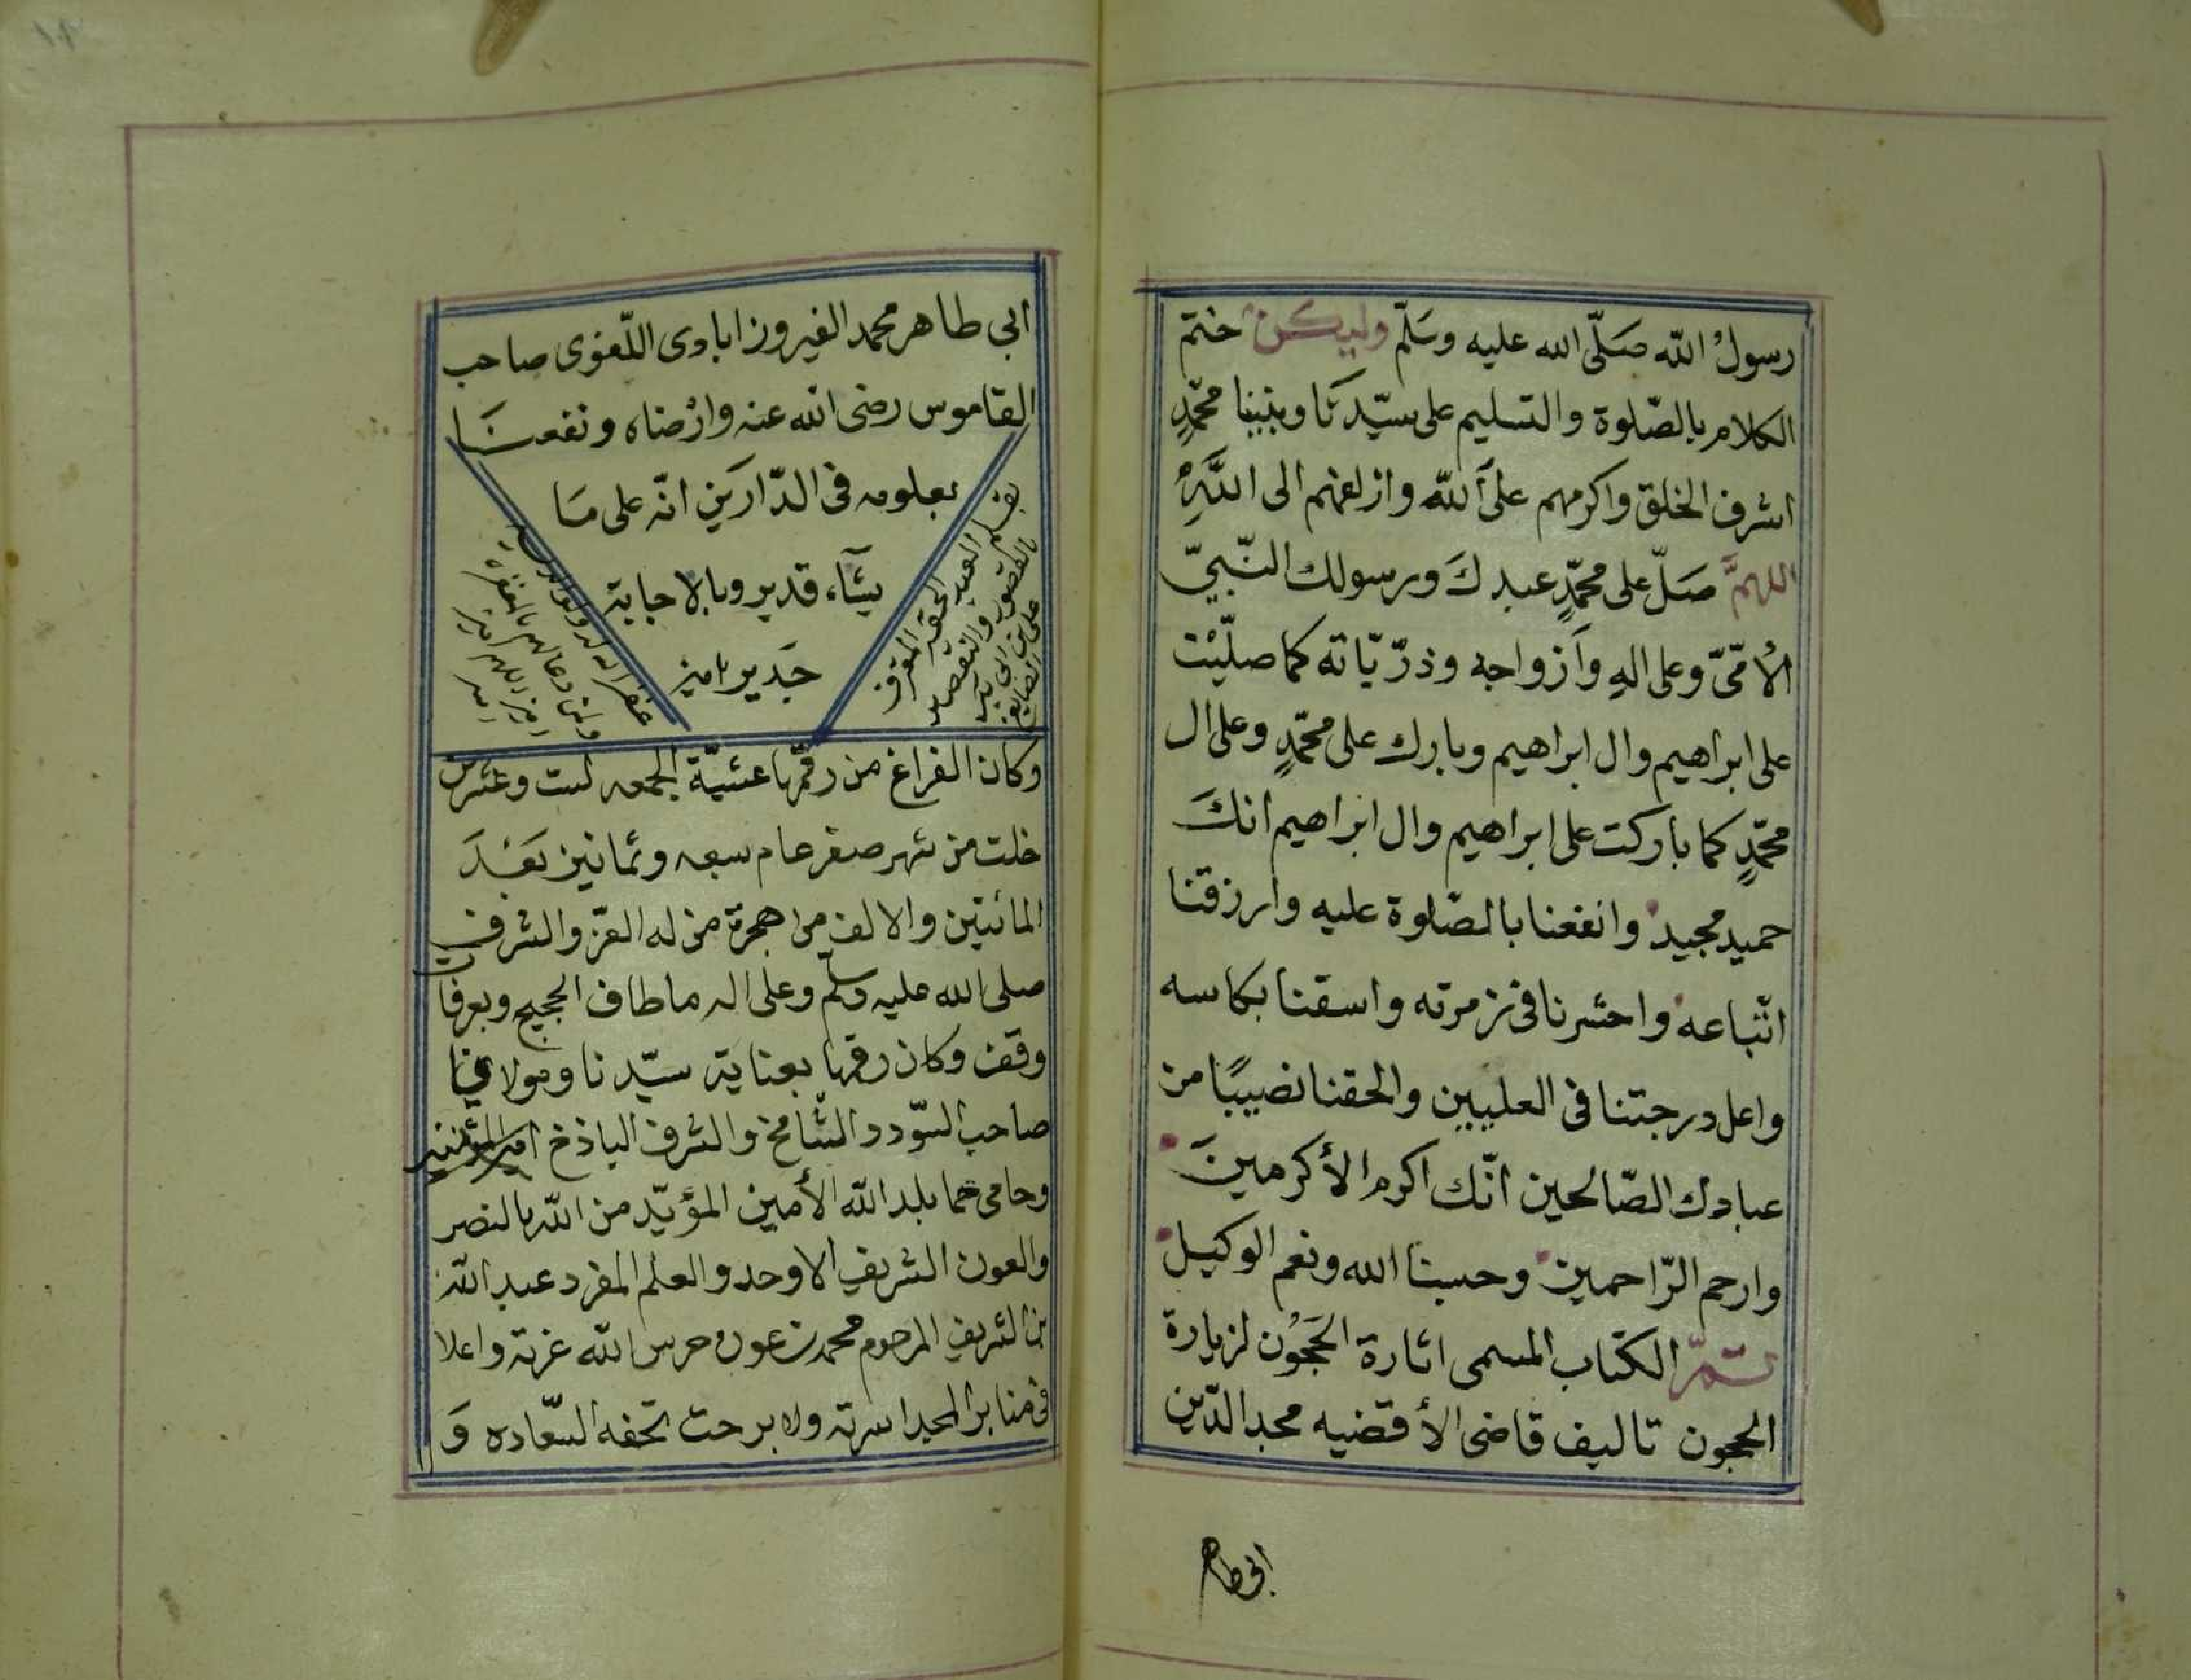 رسولُ الله صَلّى الله عليه وسَلّم وليكن ختم
الكلام بالصّلوة والتسليم على سيّدنَا ونبينا محمّدٍ
اشرف الخلق واكرمهم علىَ الله وازلفهم الى اللَّهِ
اللهمَّ صَلّ على محمّدٍ عبدكَ ورسولك النّبيّ
الأمّىّ وعلى الهِ وَازواجه وذرّيّاته كما صلّيْت
على ابراهيم وال ابراهيم وبارك على محمّدٍ وعلى ال
محمّدٍ كما باركت على ابراهيم وال ابراهيم انكَ
حميد مجيد وانفعنا بالصّلوة عليه وارزقنا
اتّباعه واحشرنا فى زمرته واسقنا بكاسه
واعل درجتنا فى العليين والحقنا نصيبًا من
عبادك الصّالحين انّك اكرم الأكرمينَ
وارحم الرّاحمين وحسبنا الله ونعم الوكيل
تمّ الكتاب المسمى اثارة الحَجُون لزيارة
الحجون تاليف قاضى الأقضيه مجد الدّين
ابى طاهر
ابي طاهر محمد الفيروزابادى اللّغوى صاحب
القاموس رضى الله عنه وارْضاه ونفعنَا
بعلومه فى الدّارَين انّه على مَا
يشَآء قدير وبالاجابة
جَدير امين
بقلم العبد الحقير المعترف
بالقصور والتقصير
على بن ابى بكر
الصايغ
غفر الله له ولوالديه
ولمن دعا لهم بالمغفرة
امين اللهم امين
امين
وكان الفراغ من رقمها عشيّة الجمعه لست وعشرين
خلت من شهر صفر عام سبعه وثمانين بَعْدَ
المائتين والالف من هجرة من له العزّ والشرف
صلى الله عليه وسلّم وعلى اله ما طاف الحجيج وبعرفات
وقف وكان رقمها بعناية سيّدنا ومولانا
صاحب السّودد الشّامخ والشرف الباذخ امير المؤمنين
وحامى حما بلد الله الأمين المؤيّد من الله بالنصر
والعون الشريف الاوحد والعلم المفرد عبد الله
بن الشريف المرحوم محمد بن عون حرس الله عزته واعلا
فى منابر المجد اسرته ولا برحت تحفه السّعاده وَ